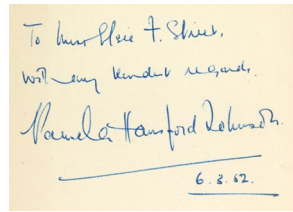 To Miss Elsie F. Street,
with my kindest regards.
Pamela Hansford Johnson.
6. 3. 62.